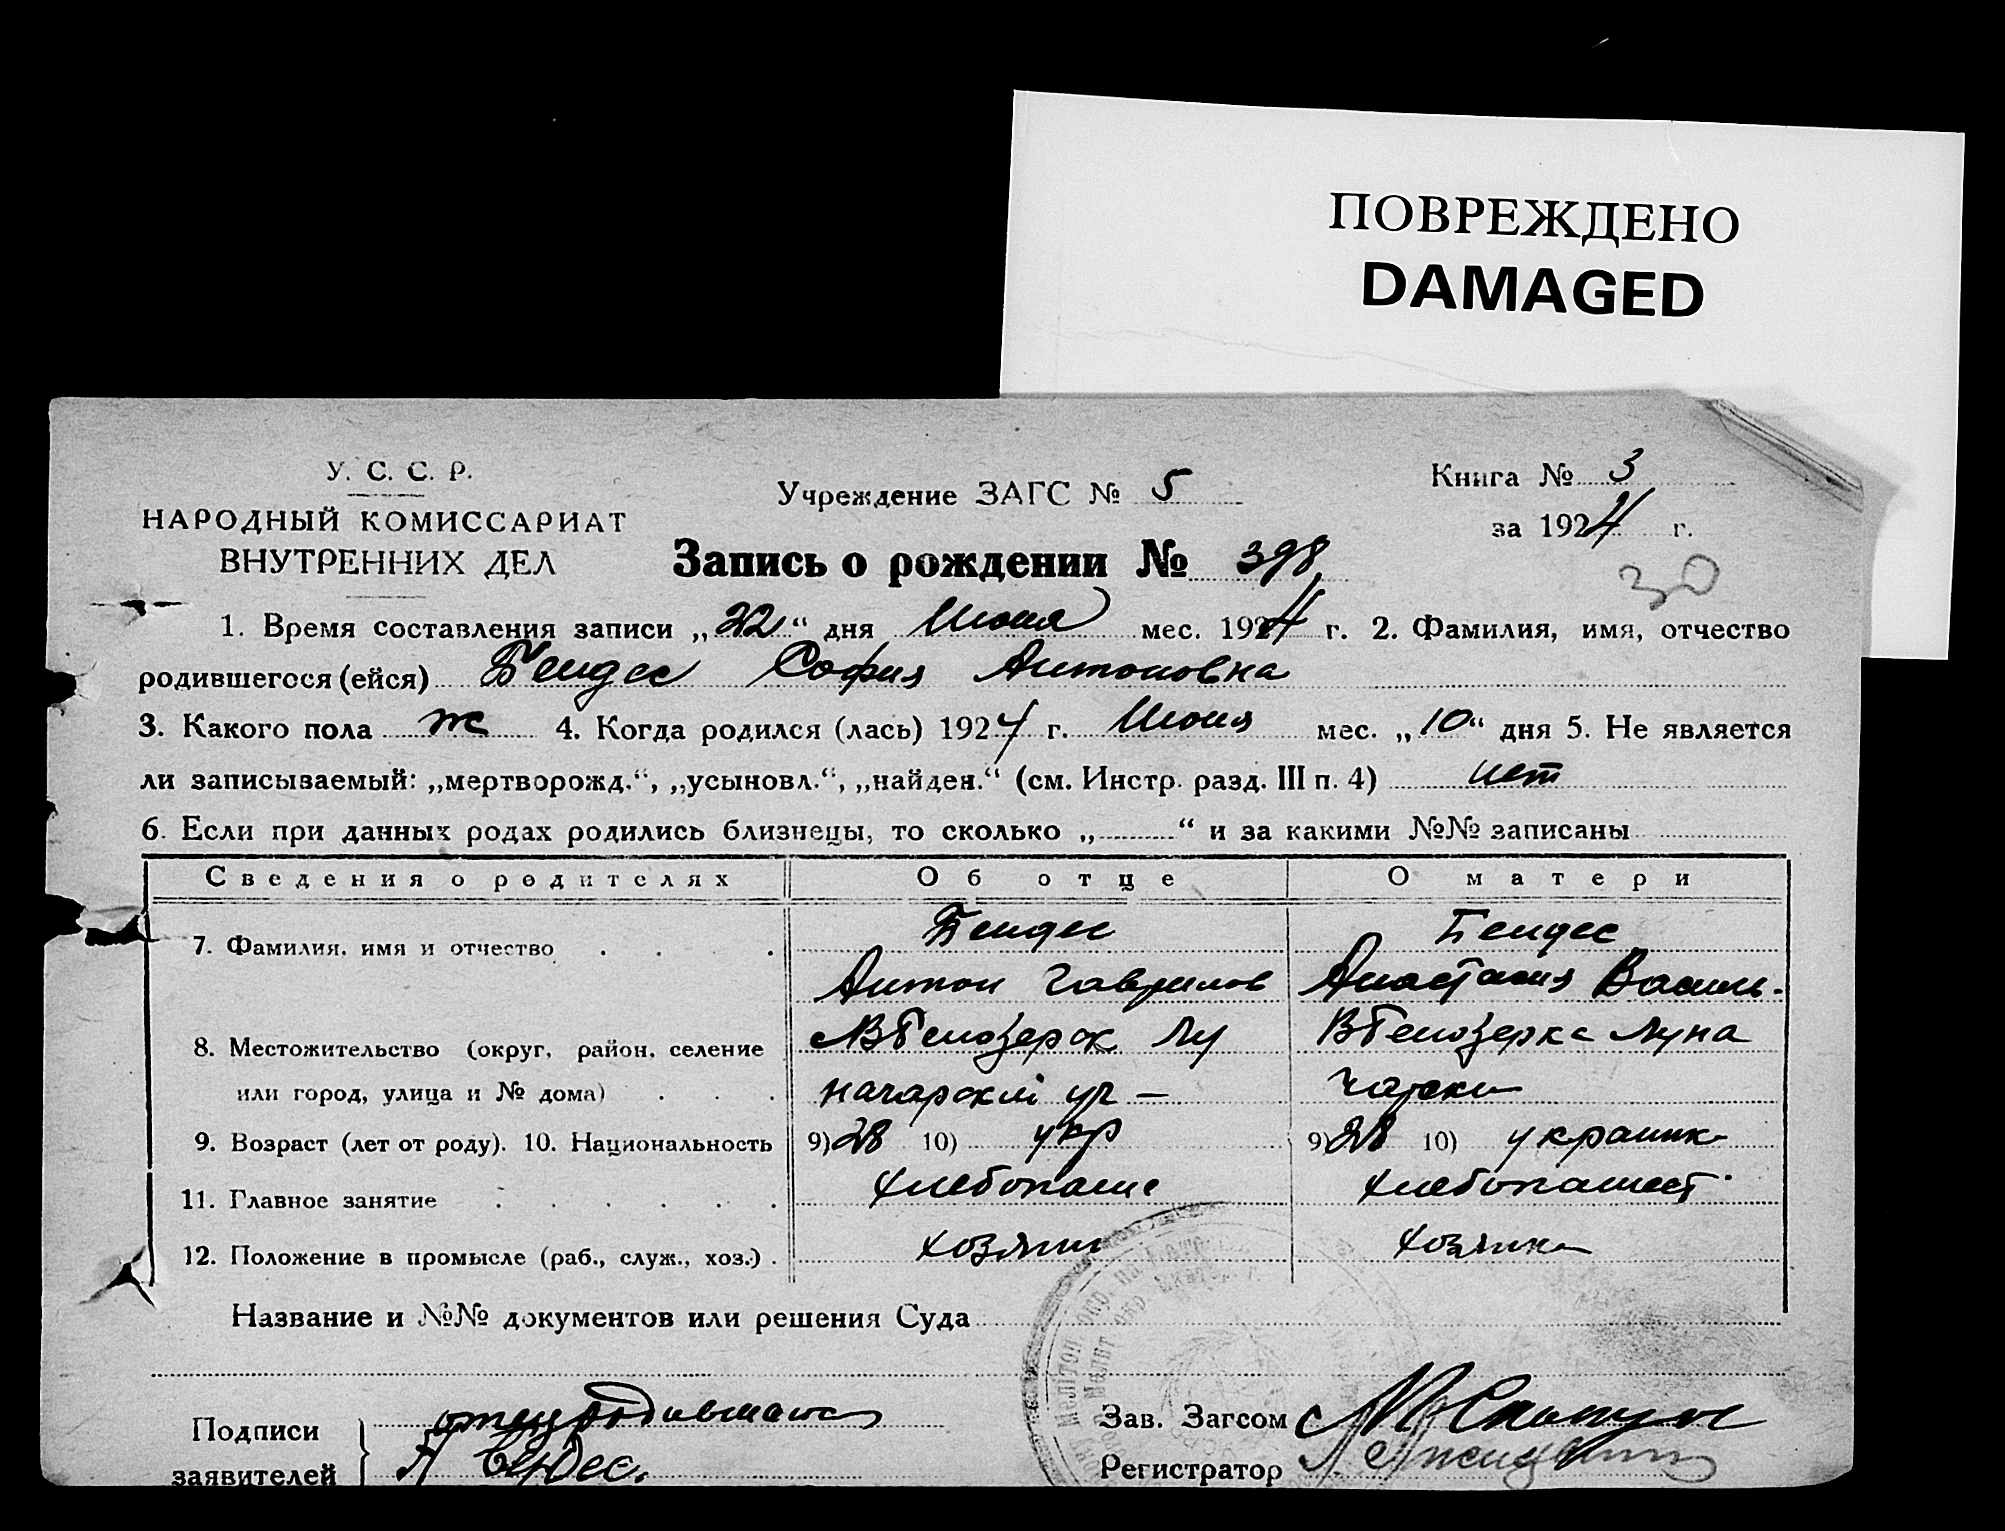 ПОВРЕЖДЕНО
DAMAGED
У. С. С. Р.
НАРОДНЫЙ КОМИССАРИАТ
ВНУТРЕННИХ ДЕЛ
Учреждение ЗАГС № 5
Книга № 3
за 1924 г.
Запись о рождении № 398
30
1. Время составления записи „22“ дня Июня мес. 1924 г. 2. Фамилия, имя, отчество
родившегося (ейся) Бендес София Антоновна
3. Какого пола ж 4. Когда родился (лась) 1924 г. Июня мес. „10“ дня 5. Не является
ли записываемый: „мертворожд.“, „усыновл.“, „найден.“ (см. Инстр. разд. III п. 4) нет
6. Если при данных родах родились близнецы, то сколько „ “ и за какими №№ записаны
Сведения о родителях Об отце О матери
7. Фамилия, имя и отчество Бендес Бендес
Антон Гаврилов Анастасия Васил.
8. Местожительство (округ, район, селение ВБелозерк Лу ВБелозерка Луна
или город, улица и № дома) начарский ул — чарски
9. Возраст (лет от роду). 10. Национальность 9) 28 10) укр 9) 28 10) украинк
11. Главное занятие хлебопаше хлебопашест.
12. Положение в промысле (раб., служ., хоз.) хозяин хозяйка
Название и №№ документов или решения Суда
Подписи
заявителей
отец родившагося
А Бендес.
Зав. Загсом
Регистратор